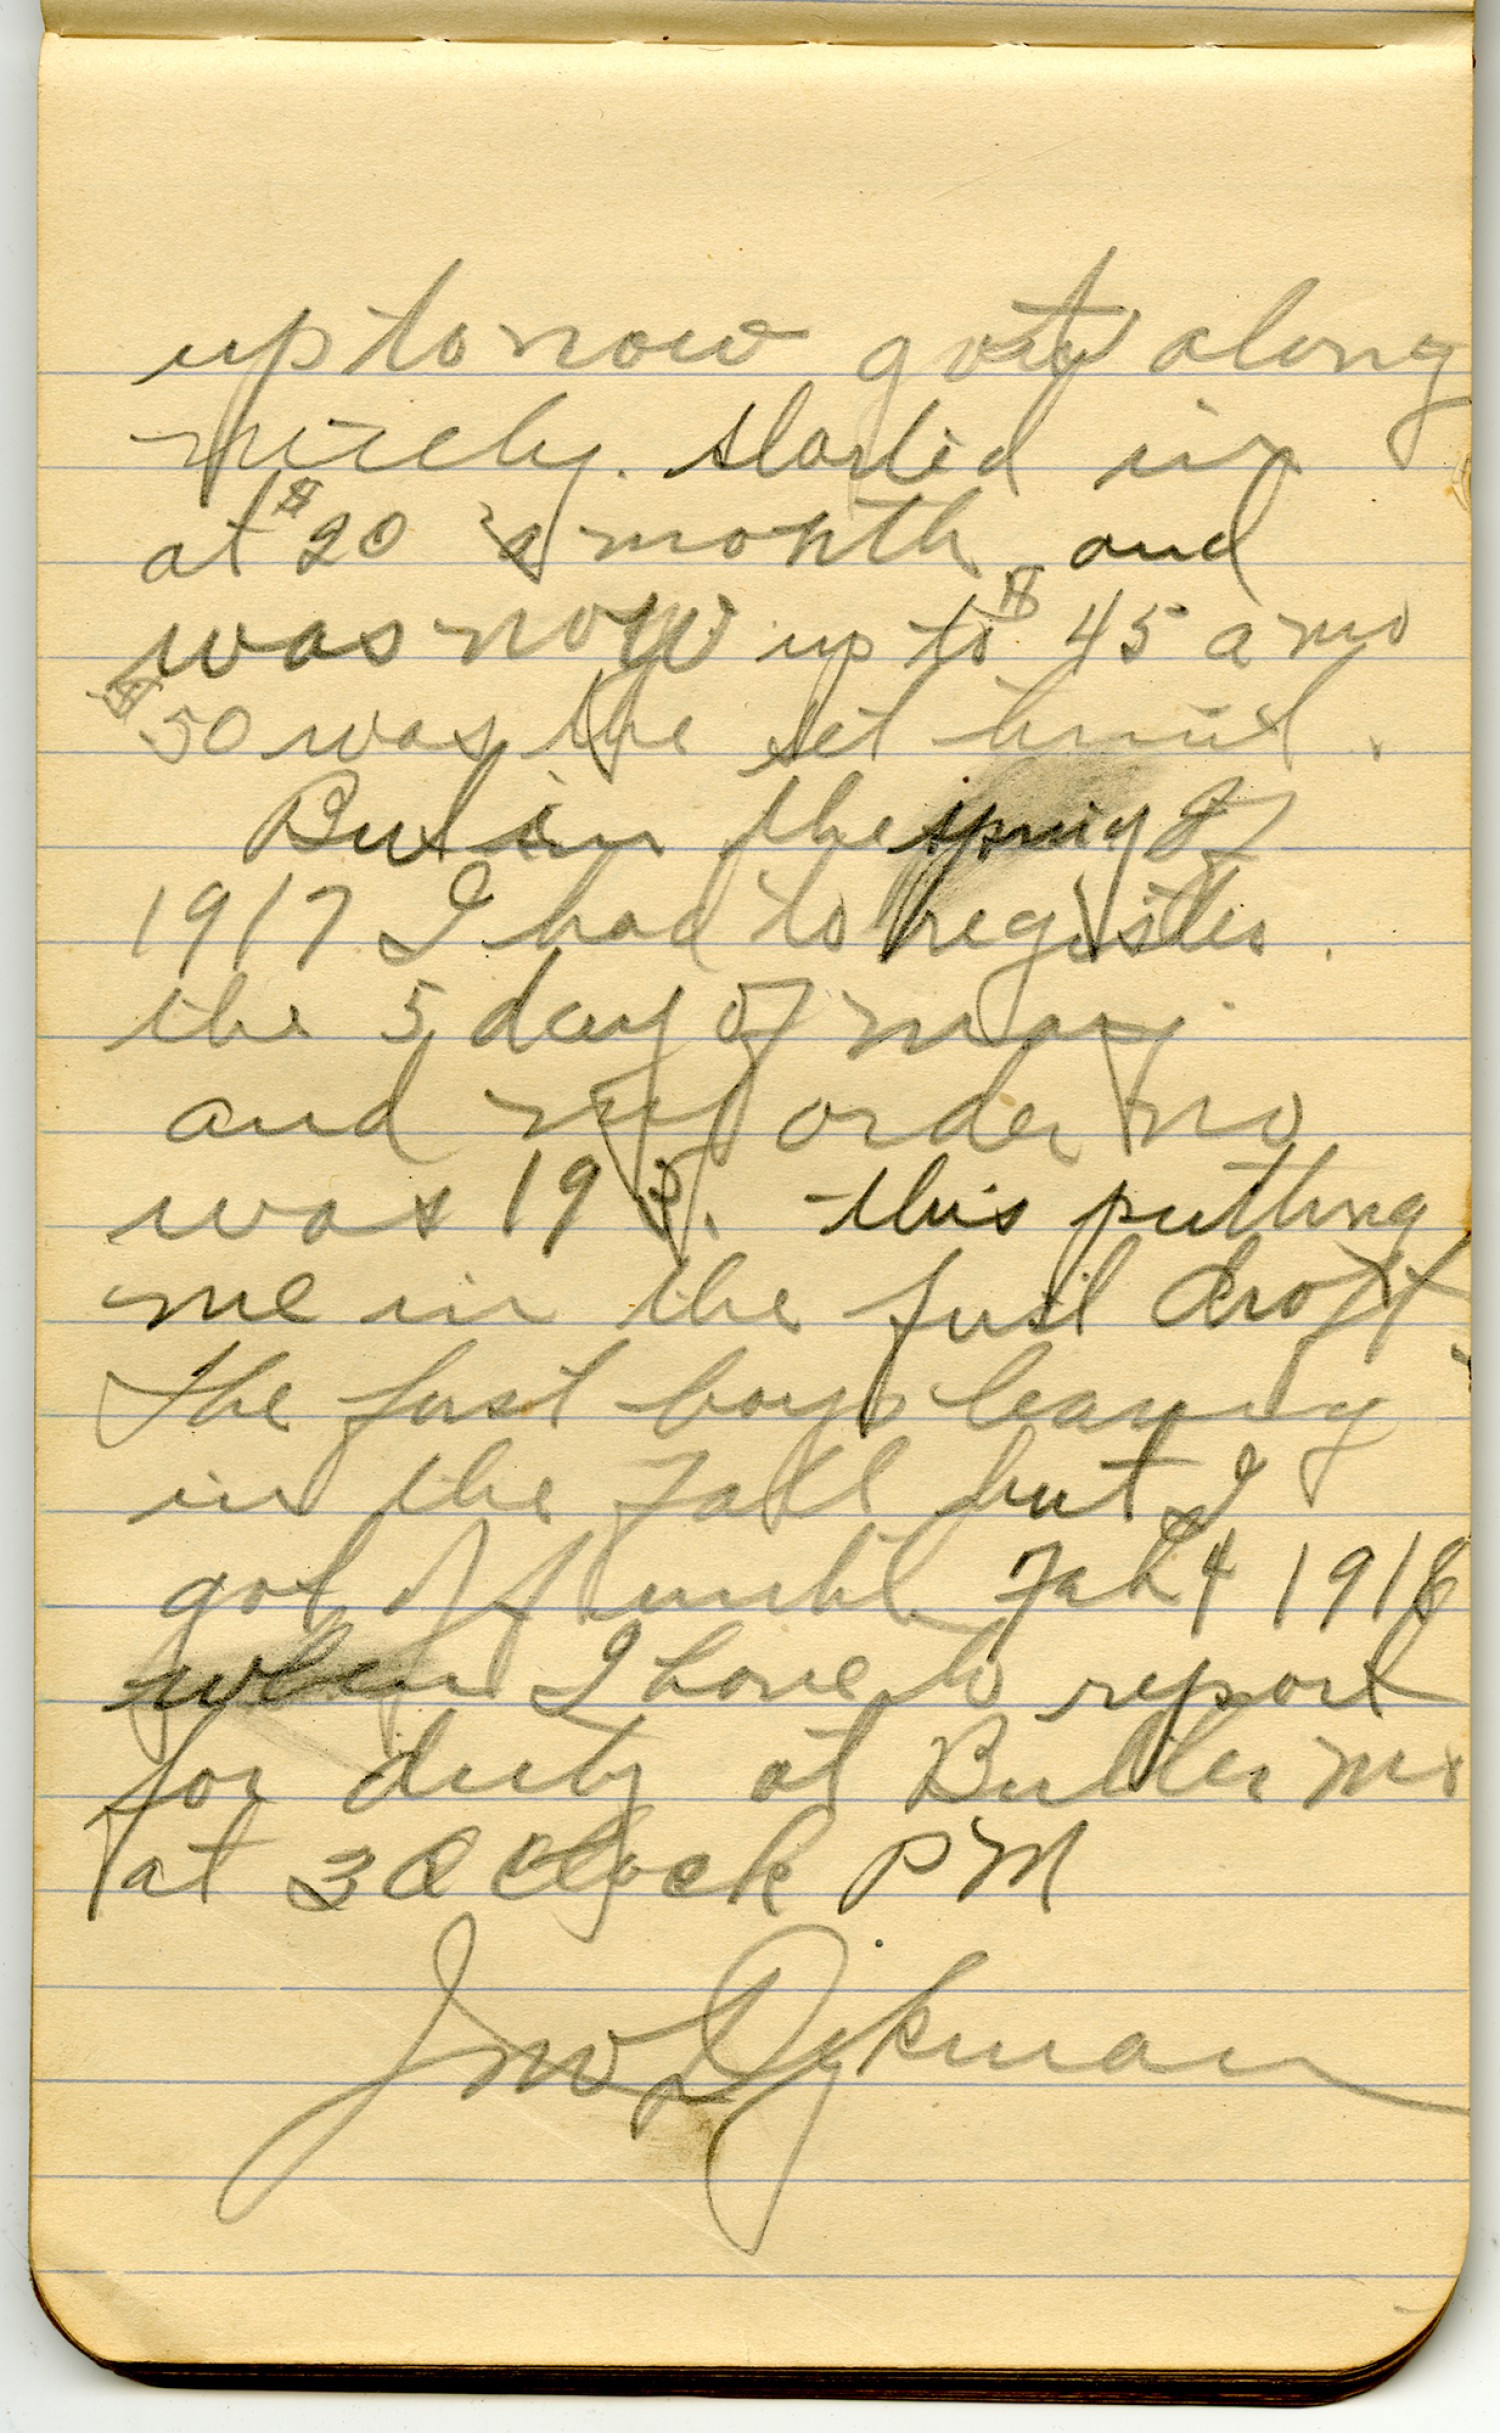 up to now got along
nicely. started in
at $20 a month and
was now up to $45 a mo
$50 was the set limit.
But in the spring of
1917 I had to register
the 5 day of may
and my order no
was 195. this putting
me in the first draft
The first boys leaving
in the Fall but I
got off until Feb 4 1918
when I have to report
for duty at Butler Mo
at 3 O Clock PM
Jno Dykman